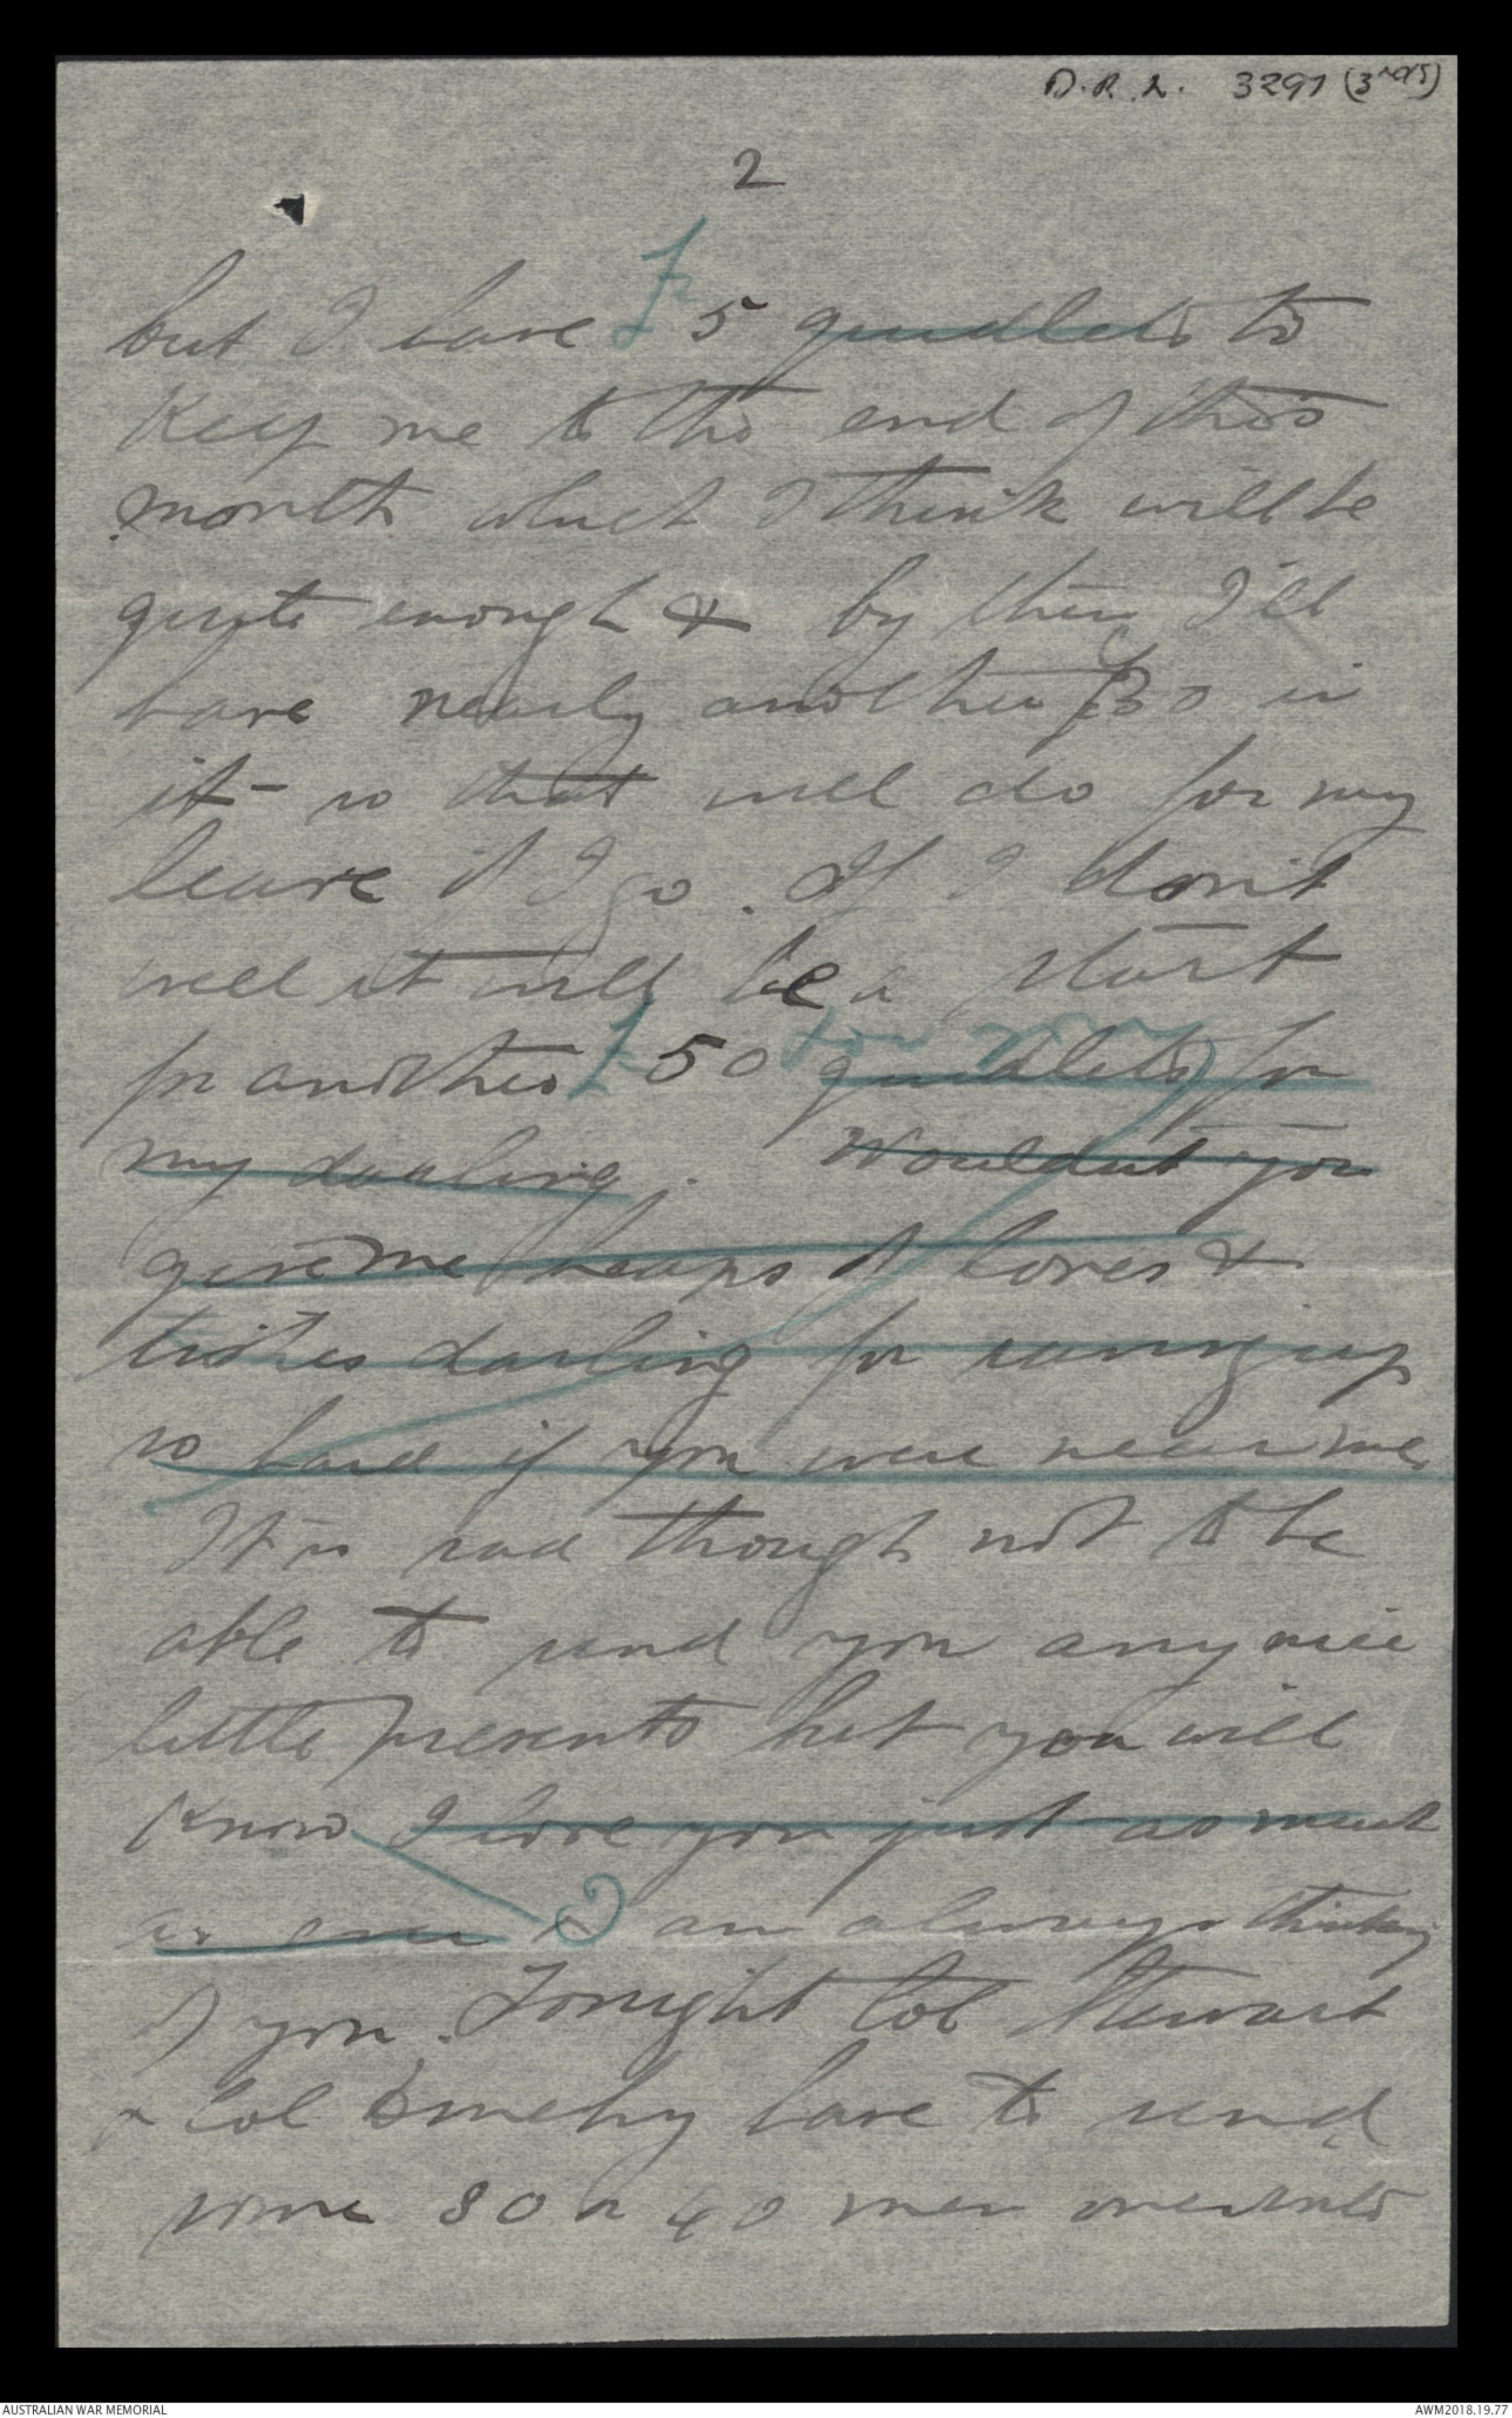 D.R.L. 3291 (3rd
2
but I have £5 quidlets to
keep me to the end of this
month which I think will be
quite enough & by then I'll
have nearly another £30 in
it - so that will do for my
leave if I go. If I don't
well it will be a start
for another £50 for you quidlets for
my darling. Wouldnt you
give me heaps of loves &
tishes darling for saving up
so hard if you were near me.
It is sad though not to be
able to send you any nice
little presents but you will
know I love you just as much
as ever & am always thinking
of you. Tonight Col Stewart
& Col have to send
some 30 or 40 men over into
AUSTRALIAN WAR MEMORIAL
AWM2018.19.77